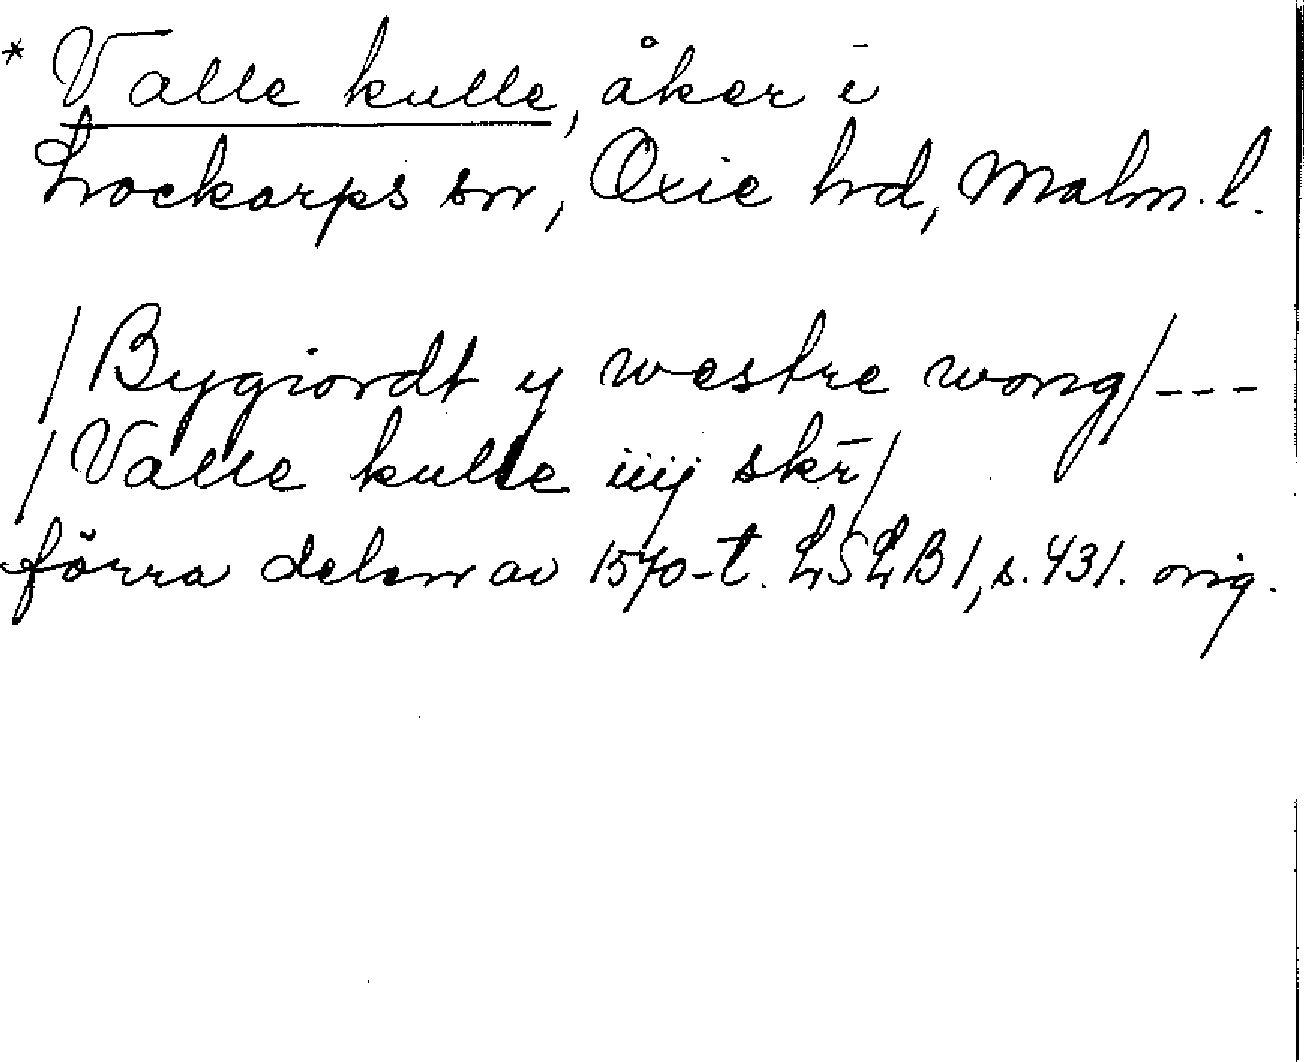 * Valle kulle, åker i
Lockarps sn, Oxie hd, Malm. l.
/Bygiordt y westre wong/---
/Valle kulle iiij skr̄/
förra delen av 1570-t. LSLB1, s. 431. orig.